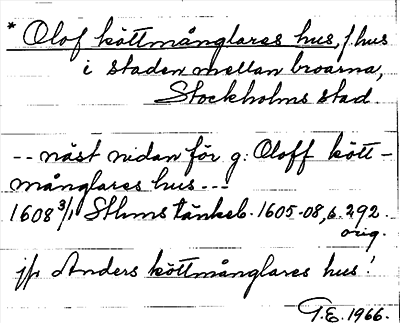 * Olof köttmånglares hus, f. hus
i staden mellan broarna,
Stockholms stad
-- näst nidan för g: Oloff kött-
månglares hus ---
1608 3/1 Sthms tänkeb. 1605-08, s. 292.
orig.
jfr Anders köttmånglares hus!
T.E. 1966.